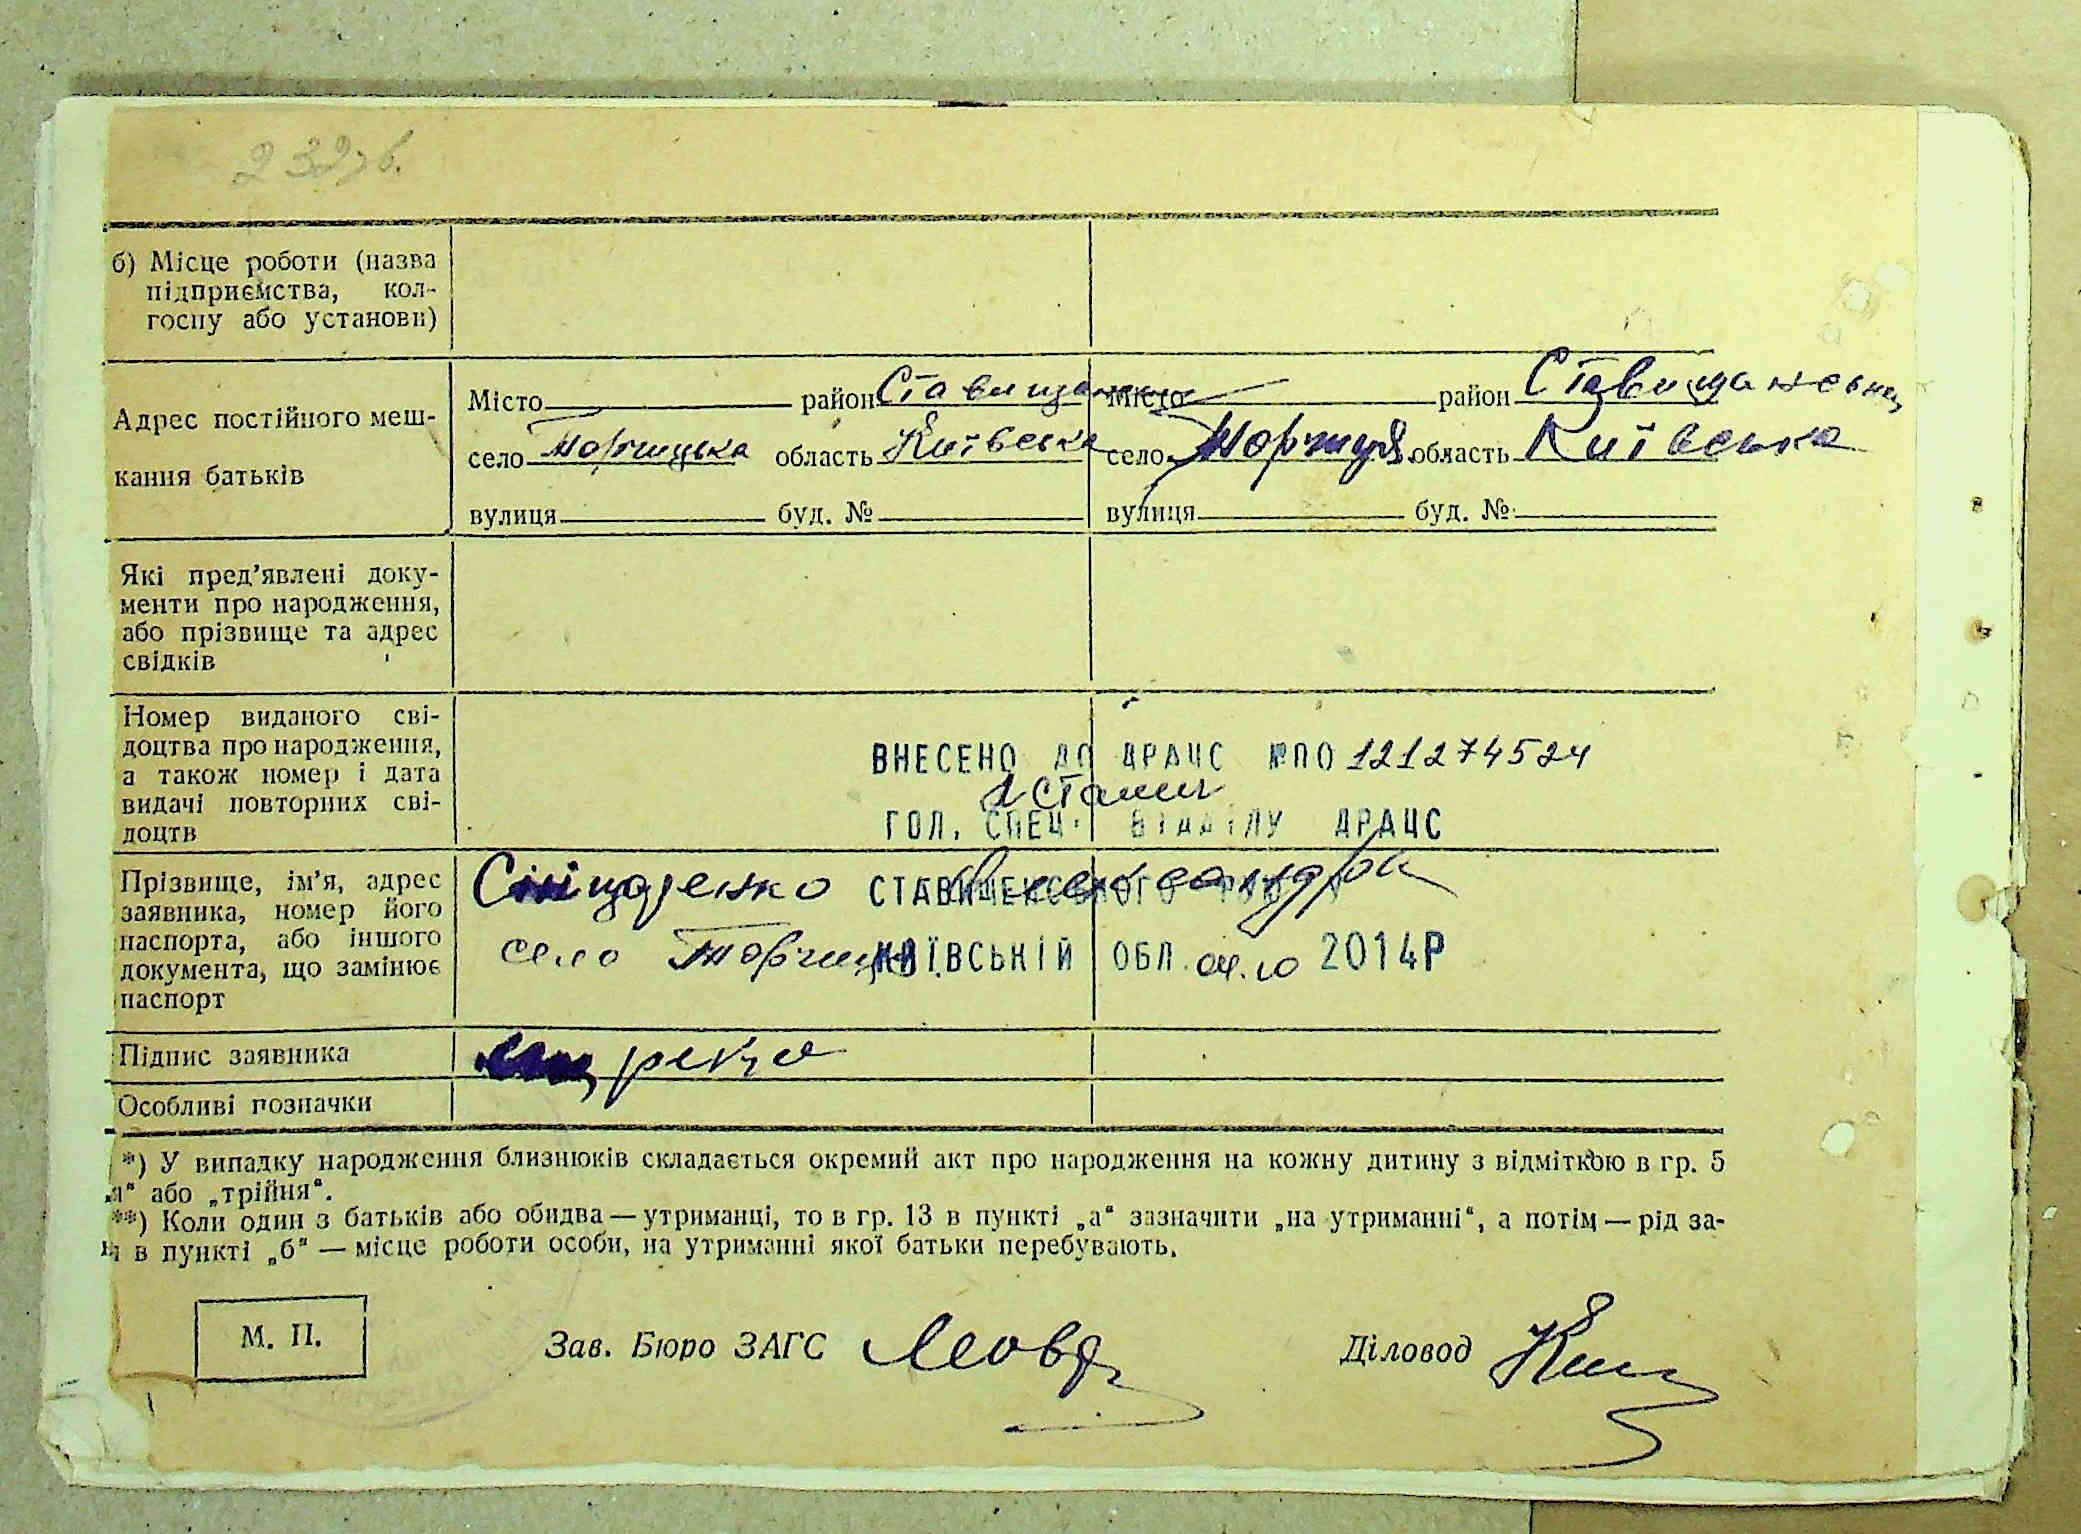 232зв.
б) Місце роботи (назва
підприємства, кол-
госпу або установи)
Адрес постійного меш-
кання батьків
Місто район Ставищанськ Місто район Ставищанський
село Торчицька область Київська село Торчиця область Київська
вулиця буд. № вулиця буд. №
Які пред’явлені доку-
менти про народження,
або прізвище та адрес
свідків
Номер виданого сві-
доцтва про народження,
а також номер і дата
видачі повторних сві-
доцтв
ВНЕСЕНО ДО ДРАЦС №ПО 121274524
ГОЛ. СПЕЦ. ВІДДІЛУ ДРАЦС
СТАВИЩЕНСЬКОГО
КИЇВСЬКІЙ ОБЛ. 04.10 2014Р
Прізвище, ім’я, адрес
заявника, номер його
паспорта, або іншого
документа, що замінює
паспорт
Олександра
село Торчиця
Підпис заявника
Особливі позначки
*) У випадку народження близнюків складається окремий акт про народження на кожну дитину з відміткою в гр. 5
“ або „трійня“.
**) Коли один з батьків або обидва — утриманці, то в гр. 13 в пункті „а“ зазначити „на утриманні“, а потім — рід за-
в пункті „б“ — місце роботи особи, на утриманні якої батьки перебувають.
М. П.
Зав. Бюро ЗАГС
Діловод